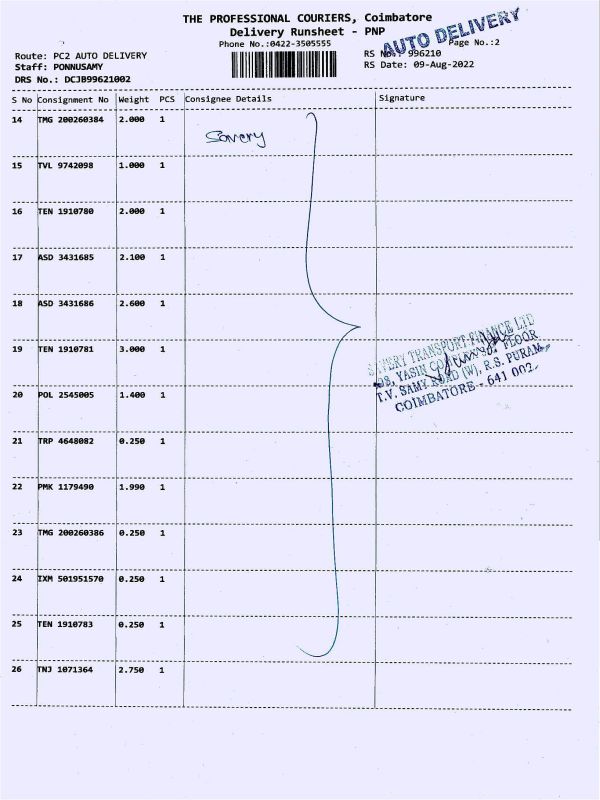 THE PROFESSIONAL COURIERS, Coimbatore
Delivery Runsheet - PNP
AUTO DELIVERY
Phone No.:0422-3505555
Page No.:2
Route: PC2 AUTO DELIVERY
RS No.: 996210
Staff: PONNUSAMY
RS Date: 09-Aug-2022
DRS No.: DCJB99621002
S No Consignment No Weight PCS Consignee Details Signature
14 TMG 200260384 2.000 1
Savery
15 TVL 9742098 1.000 1
16 TEN 1910780 2.000 1
17 ASD 3431685 2.100 1
18 ASD 3431686 2.600 1
19 TEN 1910781 3.000 1
SAVERY TRANSPORT FINANCE LTD
YASIN FLOOR
T.V. SAMY ROAD (W), R.S. PURAM,
COIMBATORE - 641 002.
20 POL 2545005 1.400 1
21 TRP 4648082 0.250 1
22 PMK 1179490 1.990 1
23 TMG 200260386 0.250 1
24 IXM 501951570 0.250 1
25 TEN 1910783 0.250 1
26 TNJ 1071364 2.750 1